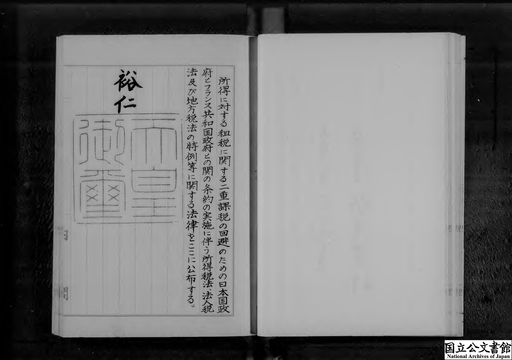 所得に対する租税に関する二重課税の回避のための日本国政
府とフランス共和国政府との間の条約の実施に伴う所得税法、法人税
法及び地方税法の特例等に関する法律をここに公布する。
裕仁
天皇
御璽
国立公文書館
National Archives of Japan